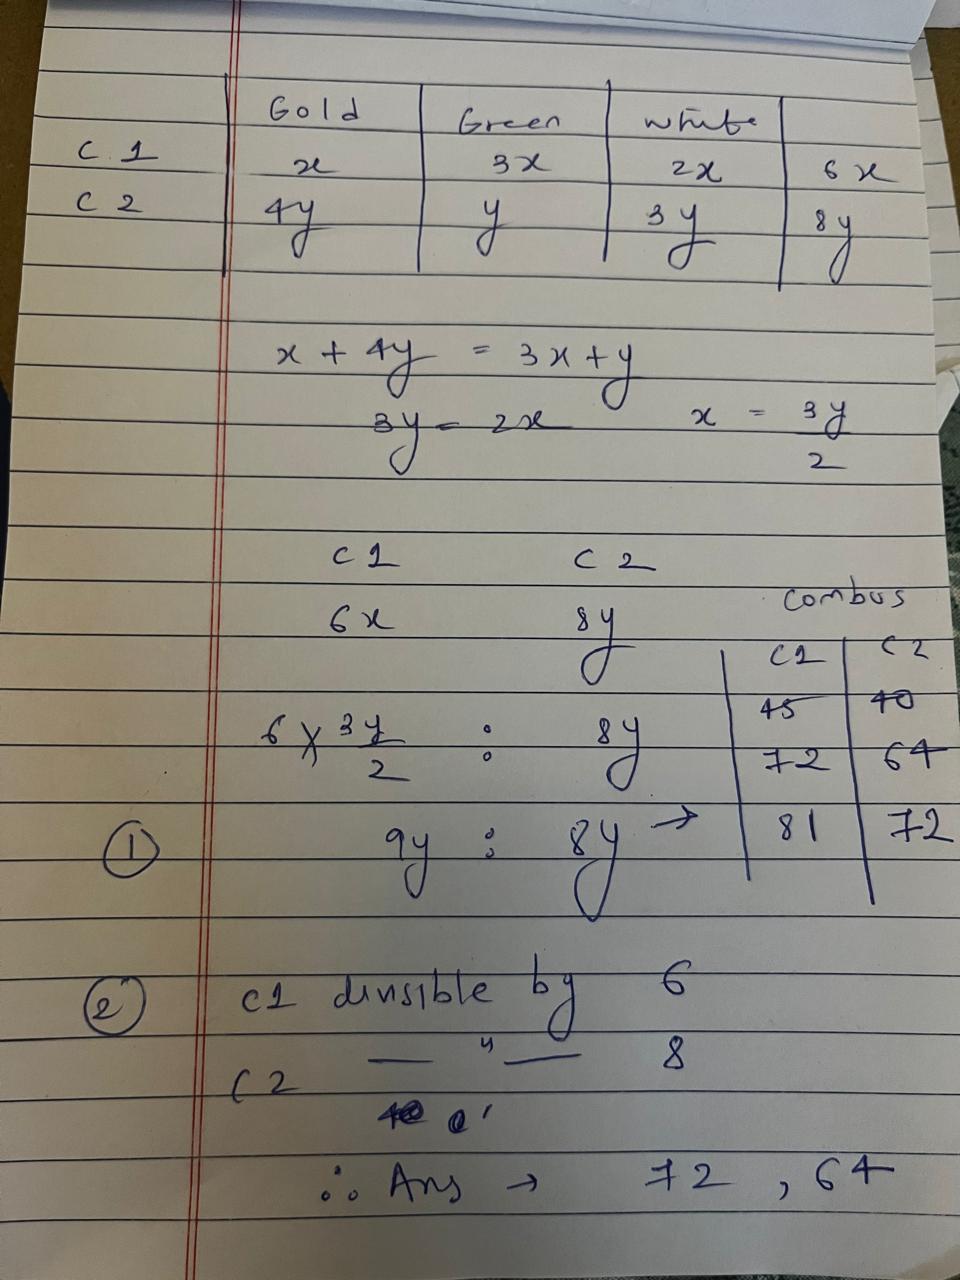 Gold Green White
C 1 x 3x 2x 6x
C 2 4y y 3y 8y
x + 4y = 3x + y
3y = 2x x = 3y/2
C1 C2
6x 8y
combus
C1 C2
45 40
6 × 3y/2 : 8y
72 64
① 9y : 8y → 81 72
② C1 divisible by 6
C2 — " — 8
∴ Ans → 72 , 64